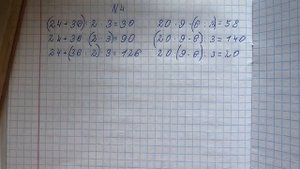 N4
(24+36) : 2 · 3=30 20 · 9 - (6 : 3)=58
24+36 : (2 · 3)=90 (20 · 9-6) : 3=140
24+(36 : 2) · 3=126 20 · (9-6) : 3=20